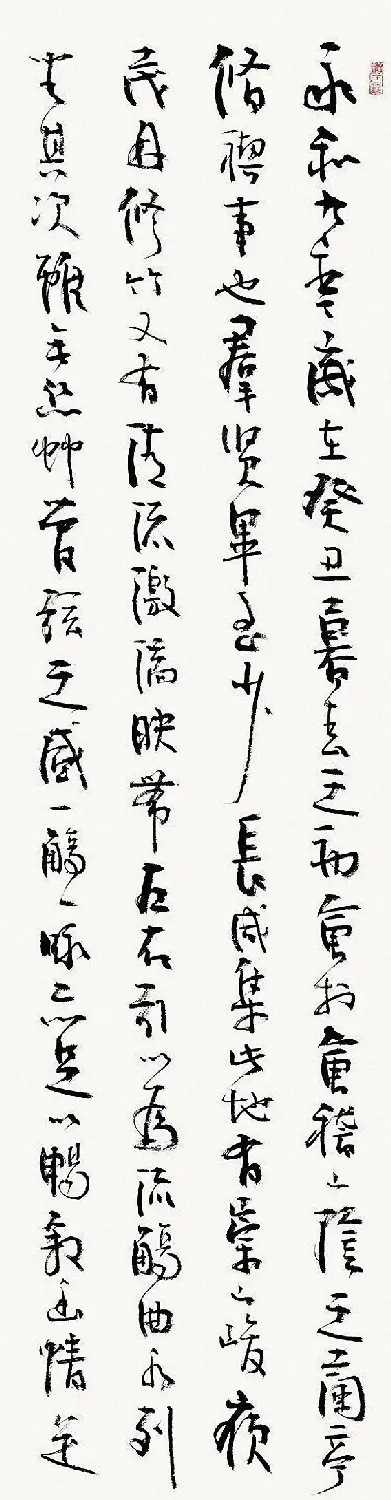 永和九年歲在癸丑暮春之初會於會稽山陰之蘭亭
脩禊事也羣賢畢至少長咸集此地有崇山峻領
茂林修竹又有清流激湍映帶左右引以為流觴曲水列
坐其次雖無絲竹管弦之盛一觴一詠亦足以暢敘幽情是